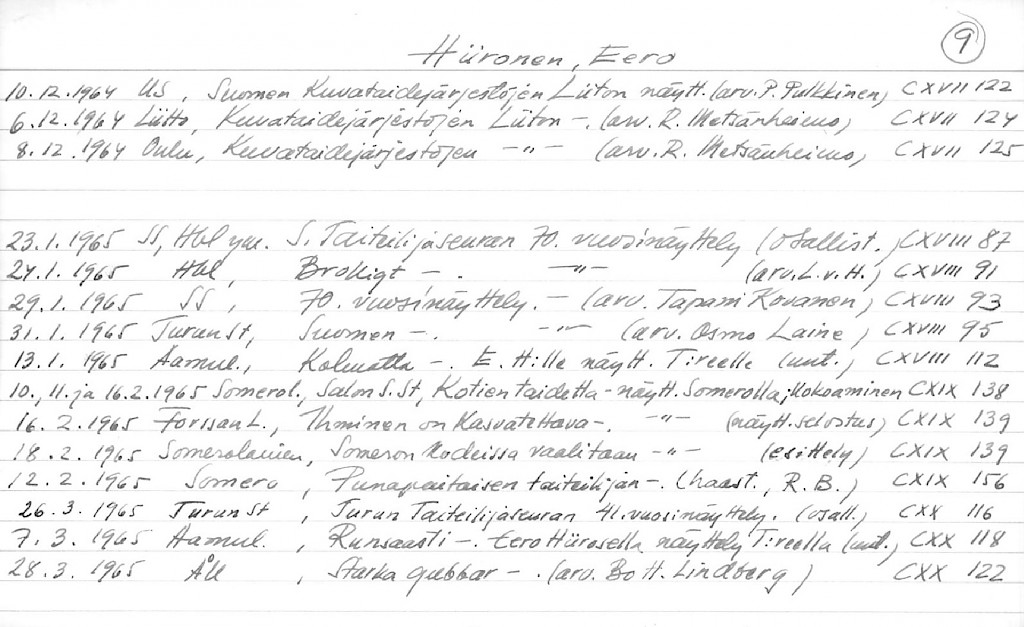 9
Hiironen, Eero
10.12.1964 US, Suomen Kuvataidejärjestöjen Liiton näytt. (arv. P. Pulkkinen) CXVII 122
6.12.1964 Liitto, Kuvataidejärjestöjen Liiton -. (arv. R. Metsänheimo) CXVII 124
8.12.1964 Oulu, Kuvataidejärjestöjen -"- (arv. R. Metsänheimo) CXVII 125
23.1.1965 SS, Hbl ym. S. Taiteilijaseuran 70. vuosinäyttely (osallist.) CXVIII 87
27.1.1965 Hbl, Brokigt -. -"- (arv. L.v.H.) CXVIII 91
29.1.1965 SS, 70. vuosinäyttely. - (arv. Tapani Kovanen) CXVIII 93
31.1.1965 TurunSt, Suomen -. -"- (arv. Osmo Laine) CXVIII 95
13.1.1965 Aamul., Kolmatta -. E. H:lle näytt. Tre:elle (uut.) CXVIII 112
10., 11. ja 16.2.1965 Somerol., Salon S. St, Kotien taidetta -näytt. Somerolla; kokoaminen CXIX 138
16.2.1965 Forssan L., Ihminen on kasvatettava -. -"- (näytt. selostus) CXIX 139
18.2.1965 Somerolainen, Someron kodeissa vaalitaan -"- (esittely) CXIX 139
12.2.1965 Somero, Punapaitaisen taiteilijan -. (haast., R.B.) CXIX 156
26.3.1965 TurunSt, Turun Taiteilijaseuran 41. vuosinäyttely. (osall.) CXX 116
7.3.1965 Aamul., Runsaasti -. Eero Hiirosella näyttely Tre:lla (uut.) CXX 118
28.3.1965 ÅU, Starka gubbar -. (arv. Bo H. Lindberg) CXX 122